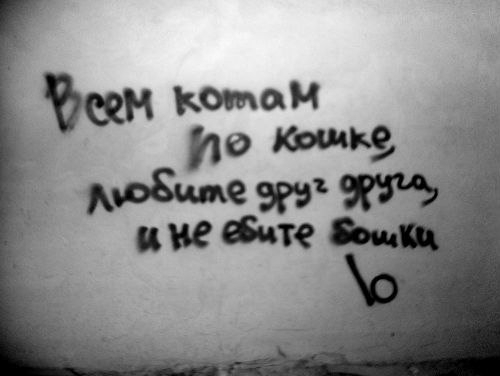 Всем котам
по кошке,
любите друг друга,
и не ебите бошки